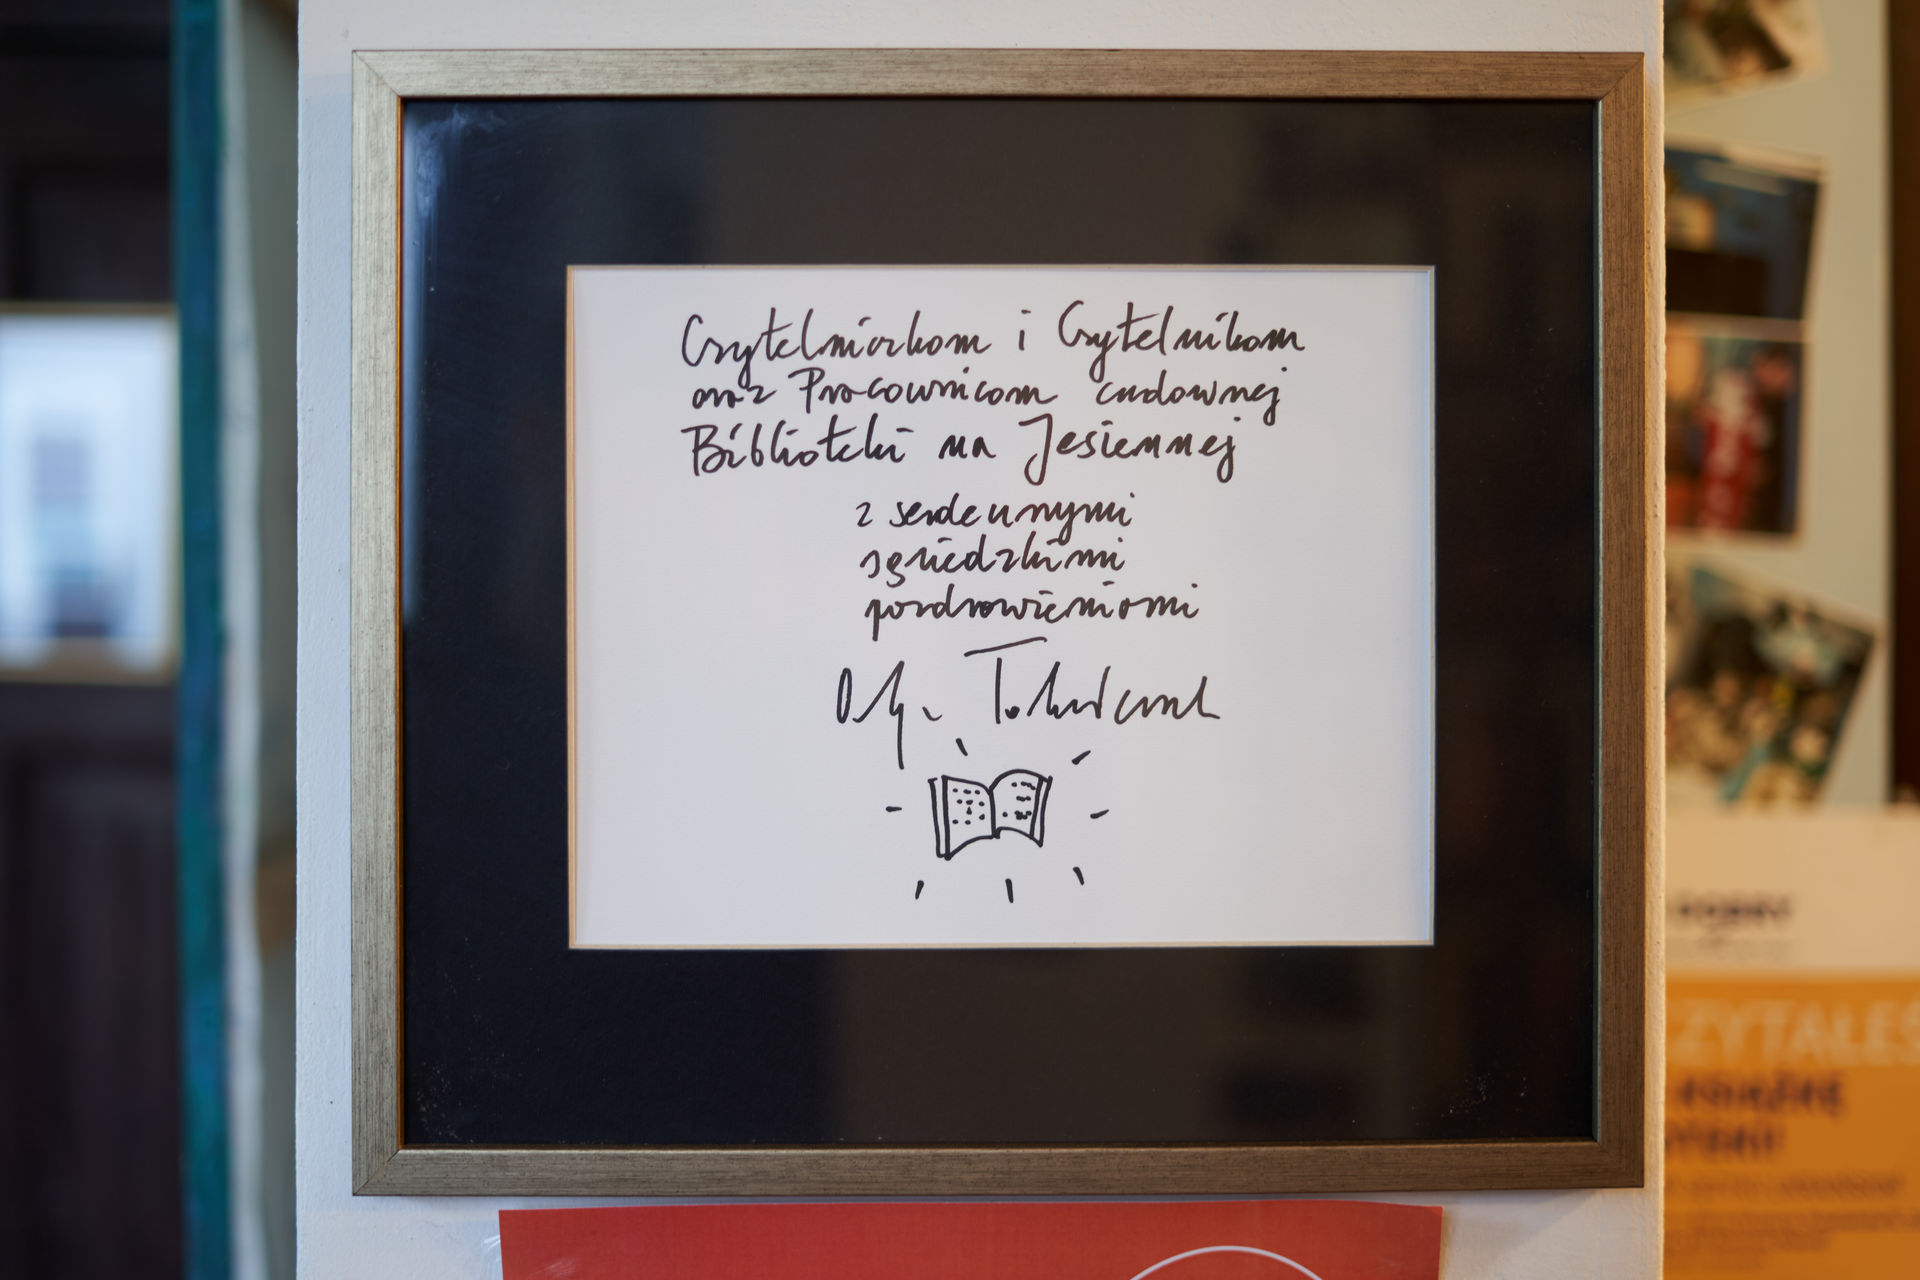 Czytelniczkom i Czytelnikom
oraz Pracownicom cudownej
Biblioteki na Jesiennej
z serdecznymi
sąsiedzkimi
pozdrowieniami
Olga Tokarczuk
CZYTAŁEŚ
KSIĄŻKĘ